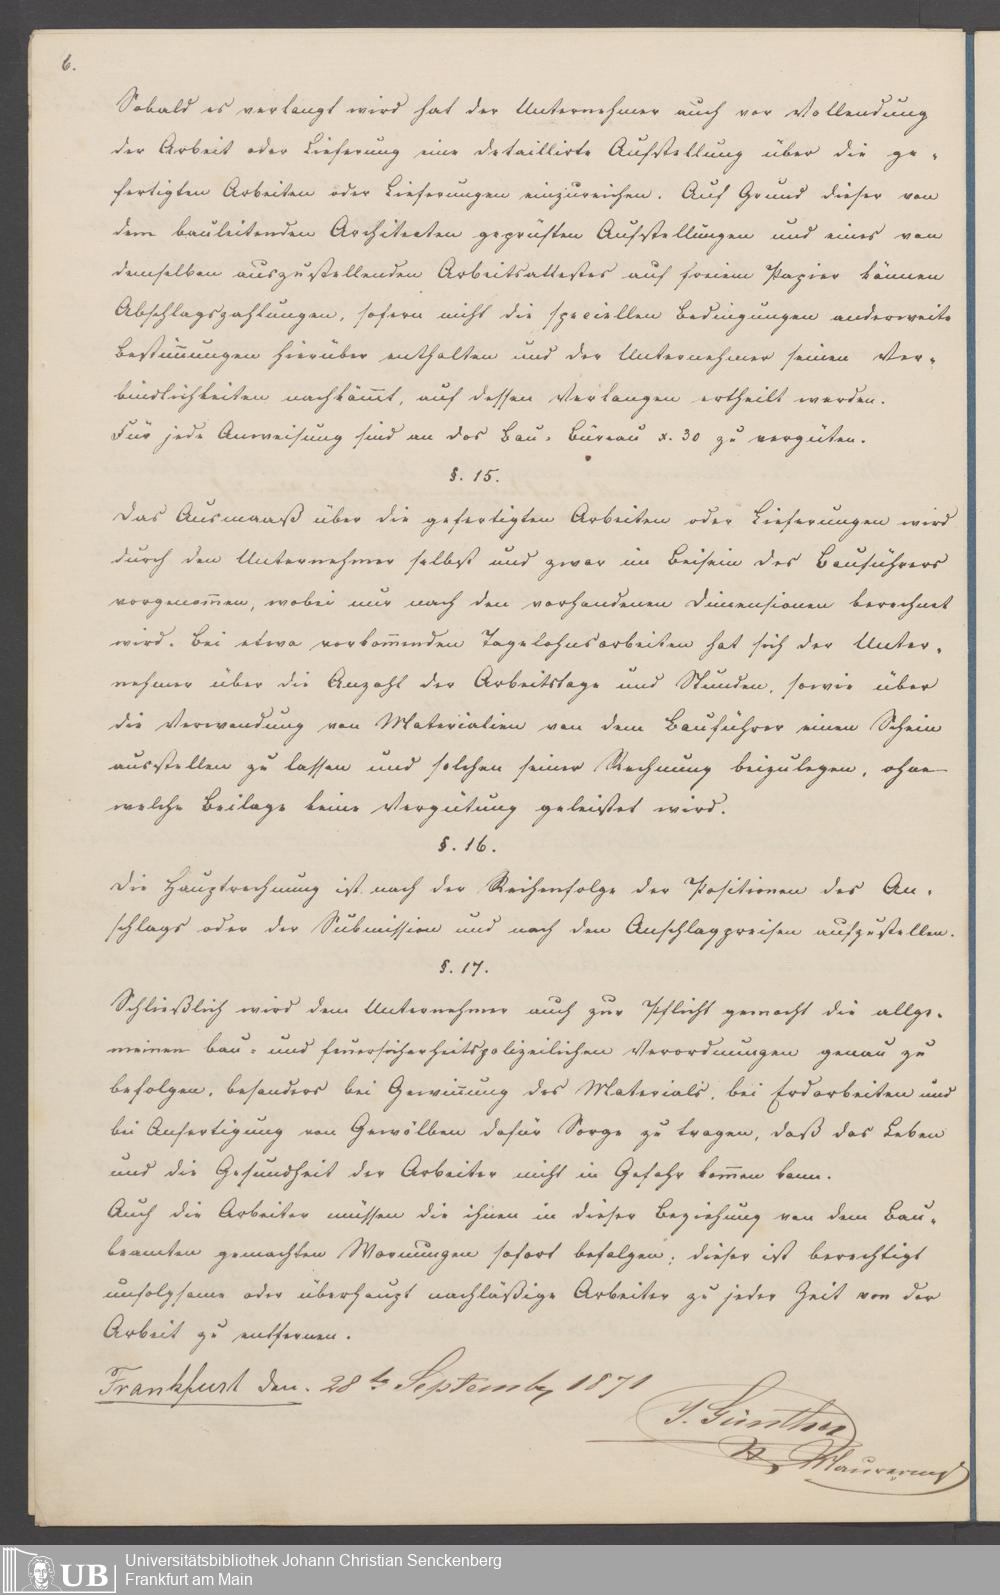 6.
Sobald es verlangt wird hat der Unternehmer auch vor Vollendung
der Arbeit oder Lieferung eine detaillirte Aufstellung über die ge-
fertigten Arbeiten oder Lieferungen einzureichen. Auf Grund dieser von
dem bauleitenden Architecten geprüften Aufstellungen und eines von
demselben auszustellenden Arbeitsattestes auf freiem Papier können
Abschlagszahlungen, sofern nicht die speciellen Bedingungen anderweite
Bestim̅ungen hierüber enthalten und der Unternehmer seinen Ver-
bindlichkeiten nachköm̅t, auf dessen Verlangen ertheilt werden.
Für jede Anweisung sind an das Bau-Büreau x. 30 zu vergüten.
§. 15.
Das Ausmaaß über die gefertigten Arbeiten oder Lieferungen wird
durch den Unternehmer selbst und zwar im Beisein des Bauführers
vorgenom̅en, wobei nur nach den vorhandenen Dimensionen berechnet
wird. Bei etwa vorkom̅enden Tagelohnsarbeiten hat sich der Unter-
nehmer über die Anzahl der Arbeitstage und Stunden, sowie über
die Verwendung von Materialien von dem Bauführer einen Schein
ausstellen zu lassen und solchen seiner Rechnung beizulegen, ohne
welche Beilage keine Vergütung geleistet wird.
§. 16.
Die Hauptrechnung ist nach der Reihenfolge der Positionen des An-
schlags oder der Submission und nach den Anschlagpreisen aufzustellen.
§. 17.
Schließlich wird dem Unternehmer auch zur Pflicht gemacht die allge-
meinen bau- und feuersicherheitspolizeilichen Verordnungen genau zu
befolgen, besonders bei Gewin̅ung des Materials, bei Erdarbeiten und
bei Anfertigung von Gewölben dafür Sorge zu tragen, daß das Leben
und die Gesundheit der Arbeiter nicht in Gefahr kom̅en kann.
Auch die Arbeiter müssen die ihnen in dieser Beziehung von dem Bau-
beamten gemachten Warnungen sofort befolgen; dieser ist berechtigt
unfolgsame oder überhaupt nachläßige Arbeiter zu jeder Zeit von der
Arbeit zu entfernen.
Frankfurt den. 28te September 1871
J. Günther
Universitätsbibliothek Johann Christian Senckenberg
Frankfurt am Main
UB